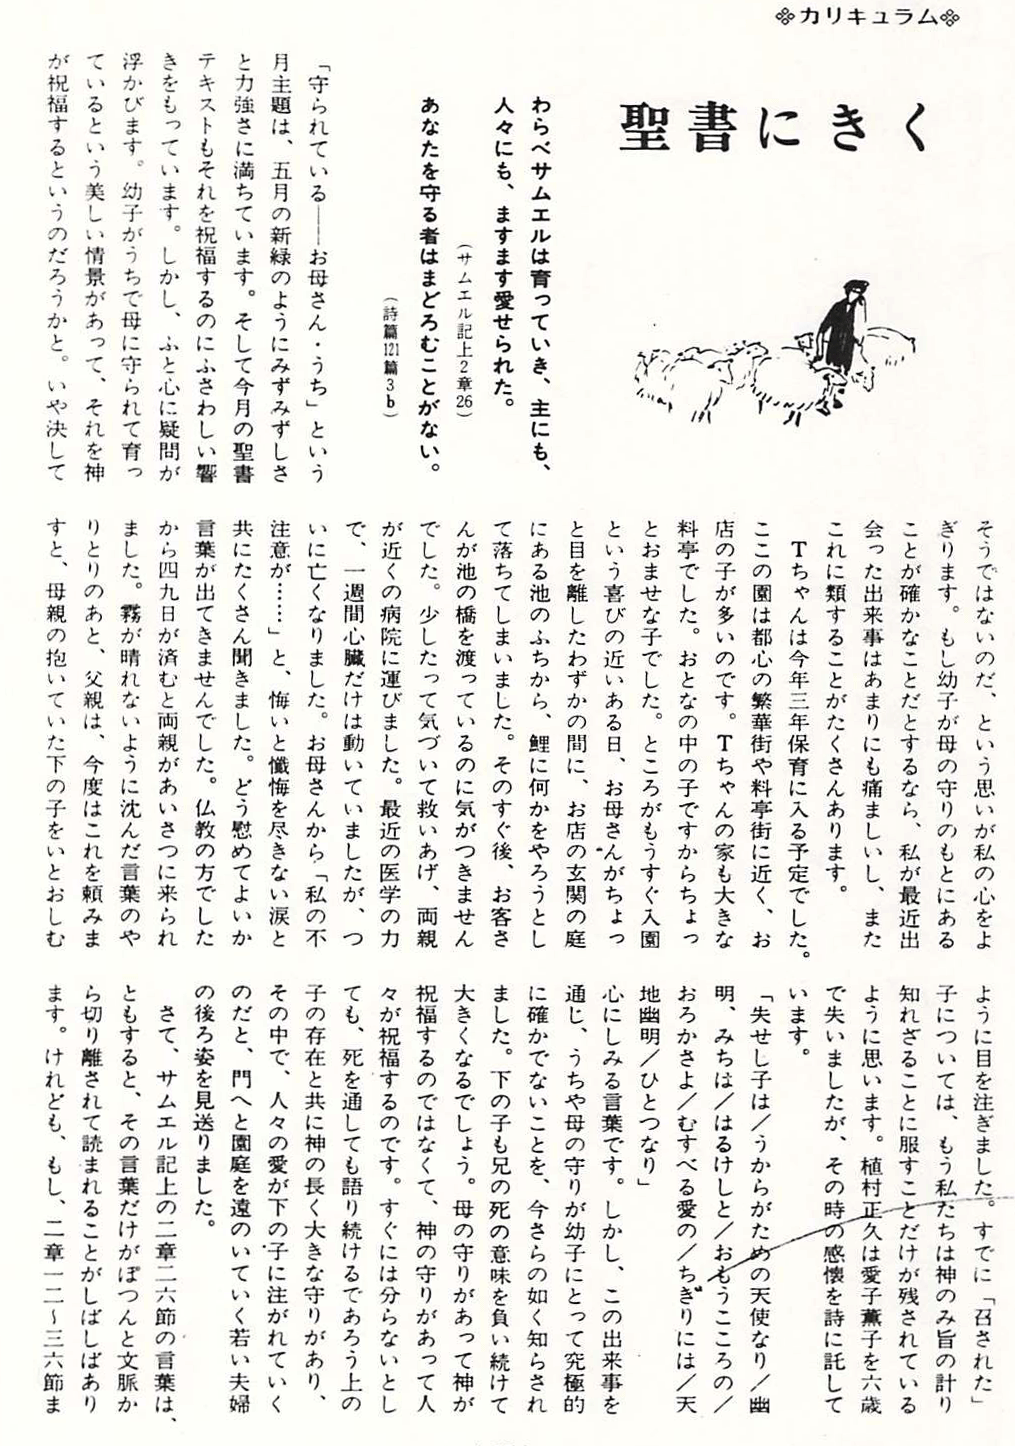 カリキュラム
聖書にきく
わらべサムエルは育っていき、主にも、
人々にも、ますます愛せられた。
(サムエル記上2章26)
あなたを守る者はまどろむことがない。
(詩篇121篇3b)
「守られている――お母さん・うち」という
月主題は、五月の新緑のようにみずみずしさ
と力強さに満ちています。そして今月の聖書
テキストもそれを祝福するのにふさわしい響
きをもっています。しかし、ふと心に疑問が
浮かびます。幼子がうちで母に守られて育っ
ているという美しい情景があって、それを神
が祝福するというのだろうかと。いや決して
そうではないのだ、という思いが私の心をよ
ぎります。もし幼子が母の守りのもとにある
ことが確かなことだとするなら、私が最近出
会った出来事はあまりにも痛ましいし、また
これに類することがたくさんあります。
Tちゃんは今年三年保育に入る予定でした。
ここの園は都心の繁華街や料亭街に近く、お
店の子が多いのです。Tちゃんの家も大きな
料亭でした。おとなの中の子ですからちょっ
とおませな子でした。ところがもうすぐ入園
という喜びの近いある日、お母さんがちょっ
と目を離したわずかの間に、お店の玄関の庭
にある池のふちから、鯉に何かをやろうとし
て落ちてしまいました。そのすぐ後、お客さ
んが池の橋を渡っているのに気がつきません
でした。少したって気づいて救いあげ、両親
が近くの病院に運びました。最近の医学の力
で、一週間心臓だけは動いていましたが、つ
いに亡くなりました。お母さんから「私の不
注意が……」と、悔いと懺悔を尽きない涙と
共にたくさん聞きました。どう慰めてよいか
言葉が出てきませんでした。仏教の方でした
から四九日が済むと両親があいさつに来られ
ました。霧が晴れないように沈んだ言葉のや
りとりのあと、父親は、今度はこれを頼みま
すと、母親の抱いていた下の子をいとおしむ
ように目を注ぎました。すでに「召された」
子については、もう私たちは神のみ旨の計り
知れざることに服すことだけが残されている
ように思います。植村正久は愛子薫子を六歳
で失いましたが、その時の感懐を詩に託して
います。
「失せし子は/うからがための天使なり/幽
明、みちは/はるけしと/おもうこころの/
おろかさよ/むすべる愛の/ちぎりには/天
地幽明/ひとつなり」
心にしみる言葉です。しかし、この出来事を
通じ、うちや母の守りが幼子にとって究極的
に確かでないことを、今さらの如く知らされ
ました。下の子も兄の死の意味を負い続けて
大きくなるでしょう。母の守りがあって神が
祝福するのではなくて、神の守りがあって人
々が祝福するのです。すぐには分らないとし
ても、死を通しても語り続けるであろう上の
子の存在と共に神の長く大きな守りがあり、
その中で、人々の愛が下の子に注がれていく
のだと、門へと園庭を遠のいていく若い夫婦
の後ろ姿を見送りました。
さて、サムエル記上の二章二六節の言葉は、
ともすると、その言葉だけがぽつんと文脈か
ら切り離されて読まれることがしばしばあり
ます。けれども、もし、二章一二〜三六節ま